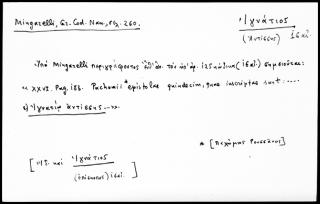 Mingarelli, Gr. Cod. Nan., σελ. 260.
Ἰγνάτιος
(Ἀντίσσης) 16 αἰ.
Ὑπὸ Mingarelli περιγράφοντος τὸν ὑπ' ἀρ. 125 κώδικα (16 αἰ.) σημειοῦται:
« XXVI. Pag. 186. Pachomii * epistolae quindecim, quae inscriptae sunt: ....
ε) Ἰγνατίῳ Ἀντίσσης ... ».
* [Παχώμιος Ῥουσάνος]
[ καὶ Ἰγνάτιος
(ἐπίσκοπος) 16 αἰ. ]